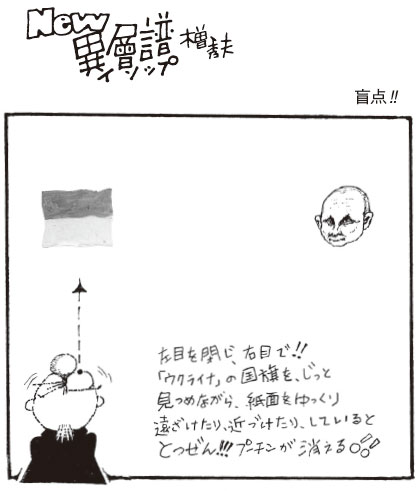 New
異層譜
イソップ
橹養夫
盲点!!
左目を閉じ、右目で!!
「ウクライナ」の国旗を、じっと
見つめながら、紙面をゆっくり
遠ざけたり、近づけたり、していると
とつぜん!!! プーチンが消える